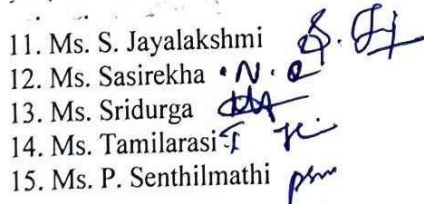 11. Ms. S. Jayalakshmi
12. Ms. Sasirekha . N.
13. Ms. Sridurga
14. Ms. Tamilarasi
15. Ms. P. Senthilmathi psm